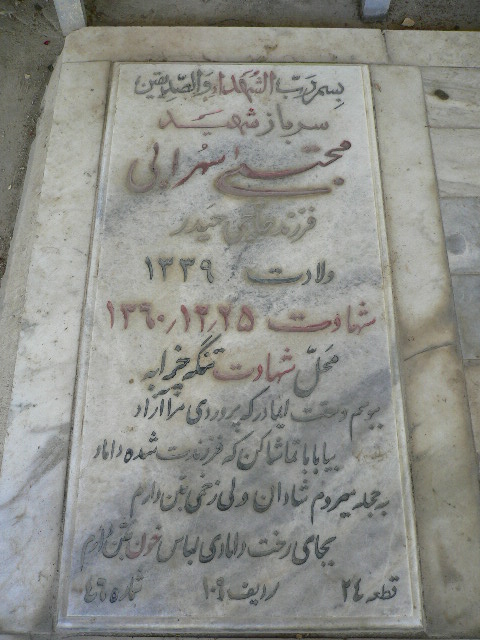 بسم رب الشهداء والصدیقین
سرباز شهید
مجتبی سهرابی
فرزند حیدر
ولادت ۱۳۳۹
شهادت ۱۳۶۰/۱۲/۲۵
محل شهادت تنگه خرابه
ببوسم دستت ای مادر که پروردی مرا آزاد
بیا بابا تماشا کن که فرزندت شده داماد
به حجله میروم شادان ولی زخمی بتن دارم
بجای رخت دامادی لباس خون بتن دارم
قطعه ۲۴ ردیف ۱۰۹ شماره ۴۶